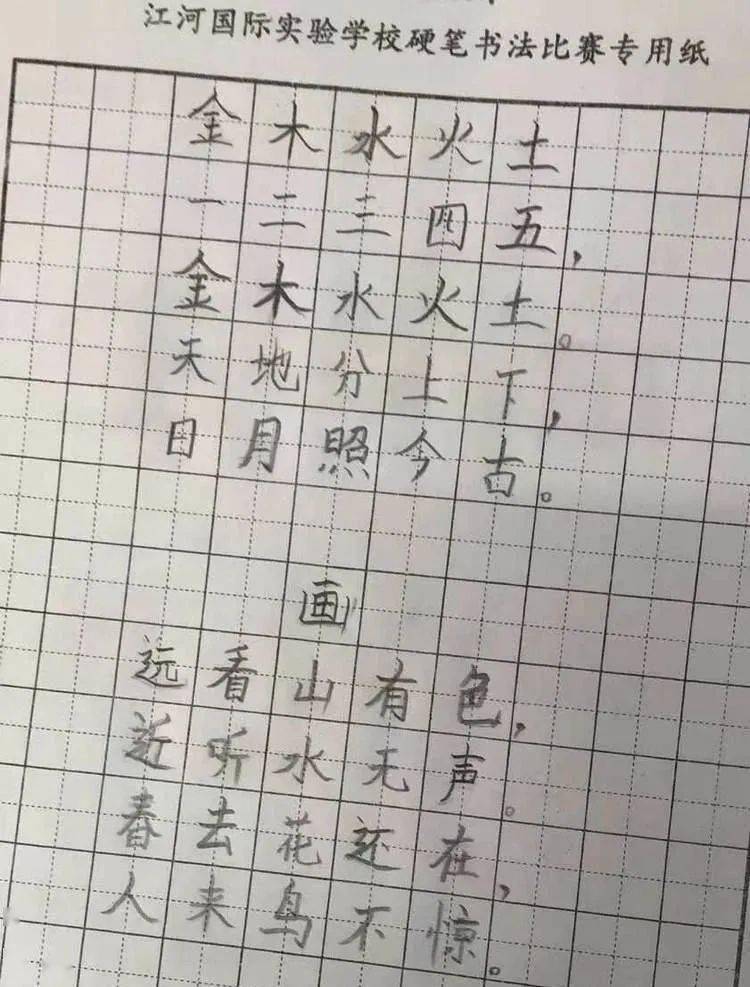 江河国际实验学校硬笔书法比赛专用纸
金木水火土
一二三四五，
金木水火土。
天地分上下，
日月照今古。
画
远看山有色，
近听水无声。
春去花还在，
人来鸟不惊。